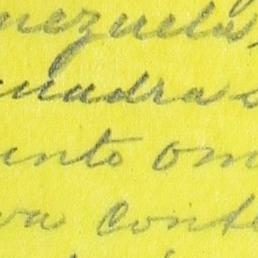 nezuela,
uadra
unto om
va conte